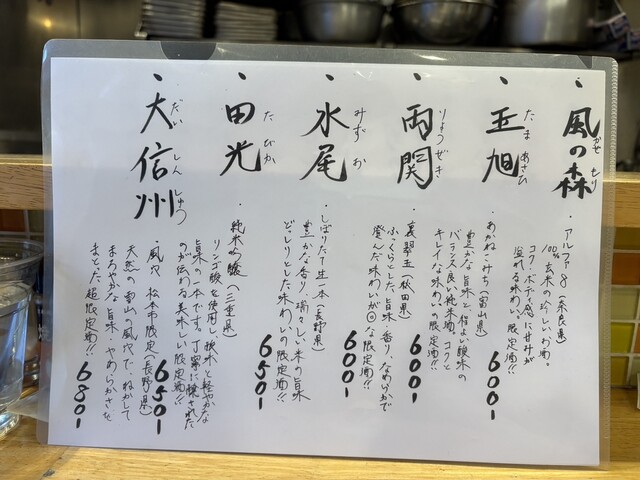 ・風の森
かぜ もり
・アルファ8(奈良県)
100%玄米の珍しいお酒。
コク・ボディ感に甘みが
溢れる味わい、限定酒!!
6001
・玉旭
たま あさひ
・あかね・みち(富山県)
豊かな旨味と程よい酸味の
バランス良い純米酒。コクと
キレイな味わいの限定酒!!
6001
・両関
りょうぜき
・裏翠玉(秋田県)
ふっくらとした、旨味・香り、なめらかで
澄んだ味わいが◎な限定酒!!
6001
・水尾
みずお
・しぼりたて生一本(長野県)
豊かな香り、瑞々しい米の旨味
どっしりとした味わいの限定酒!!
6001
・田光
たびか
・純米吟醸(三重県)
リンゴ酸を使用し、酸味と軽やかな
旨味の一本です。丁寧に醸された
のが伝わる美味しい限定酒!!
6501
・大信州
だい しん しゅう
・風穴 松本市限定(長野県)
天然の雪山の風穴で、ねかして
まろやかな旨味・やわらかさを
まとった超限定酒!!
6501
6801